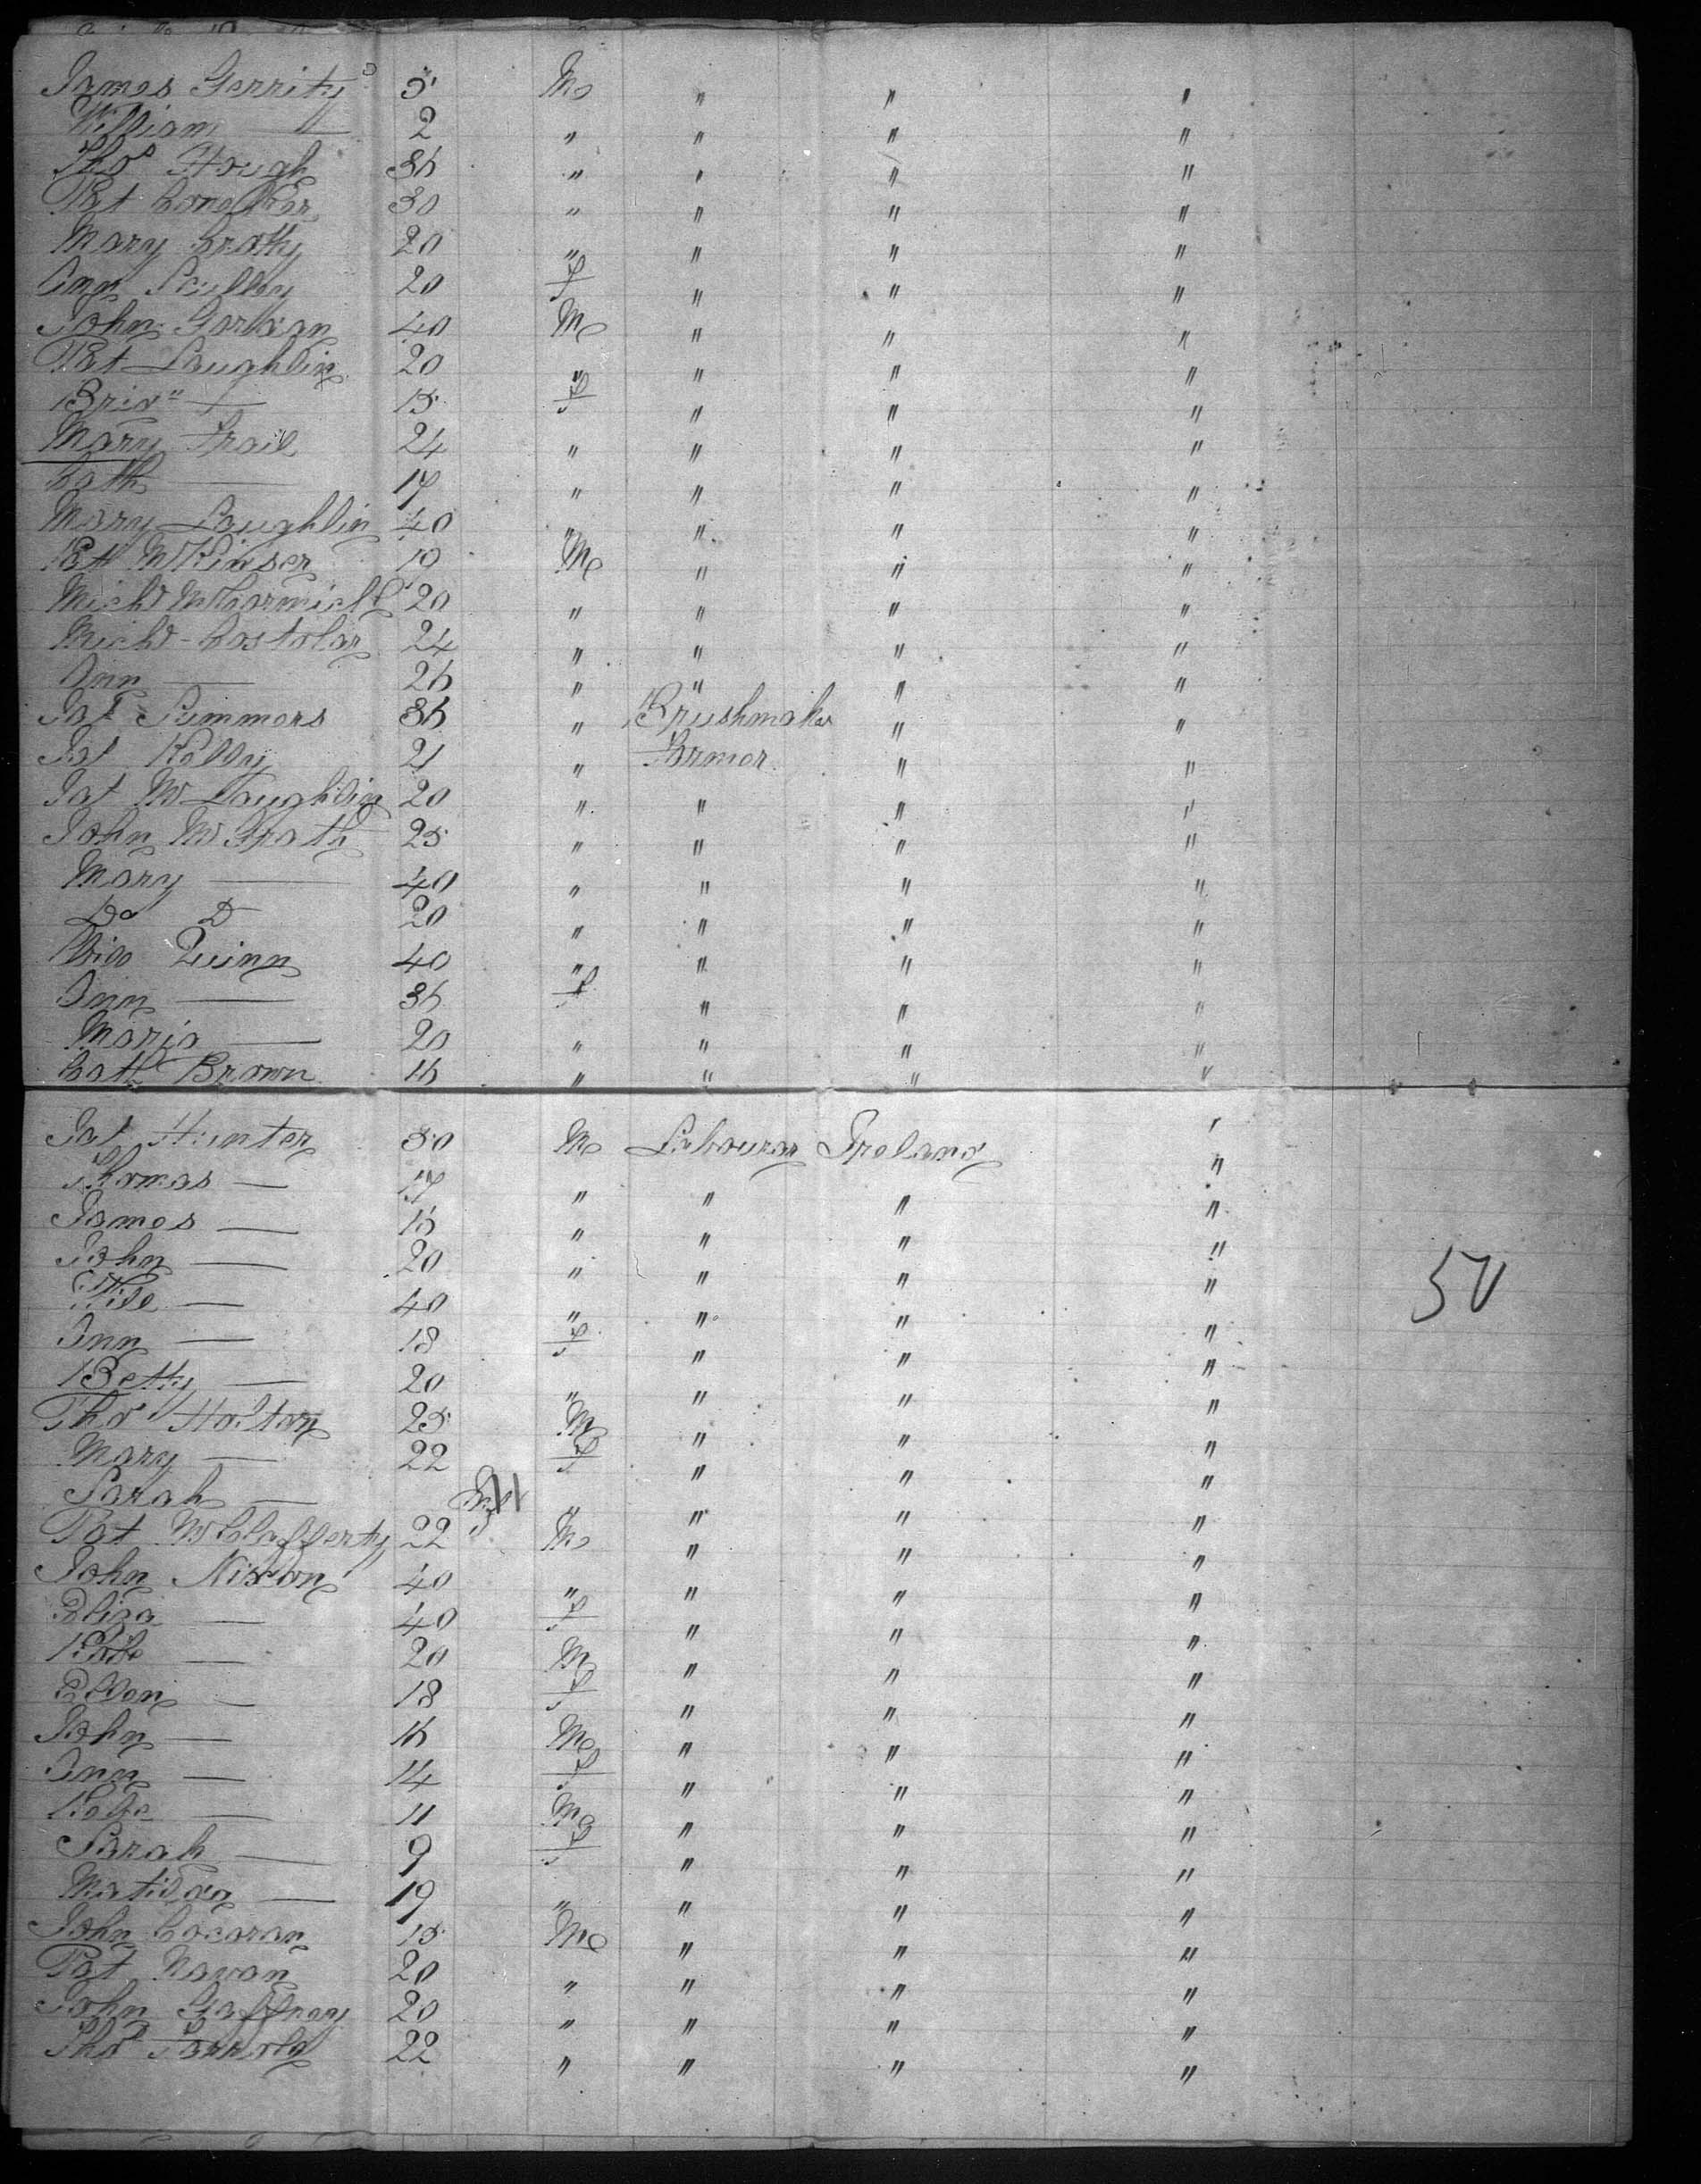 James Gerrity 5 M " " "
William — 2 " " " "
Thos Hough 36 " " " "
Pat 30 " " " "
Mary Crotty 20 " " " "
Ann Scully 20 f " " "
John 40 M " " "
Pat Laughlin 20 " " " "
Brid" — 15 f " " "
Mary Frail 24 " " " "
Cath — 17 " " " "
Mary Laughlin 40 " " " "
10 M " " "
Michl McCormick 20 " " " "
Michl Costolan 24 " " " "
Ann — 26 " " " "
Pat Summers 36 " Brushmaker " "
Pat Kelly 21 " Farmer " "
Pat Mc Laughlin 20 " " " "
John Mc Grath 25 " " " "
Mary — 40 " " " "
Do D 20 " " " "
Quinn 40 " " " "
Ann — 36 f " " "
Maria — 20 " " " "
Cath Brown 16 " " " "
Pat Hunter 50 M Labourer Ireland "
Thomas — 17 " " " "
James — 16 " " " "
John — 20 " " " "
— 40 " " " "
Ann — 18 f " " "
Betty — 20 " " " "
Thos Holton 25 M " " "
50
Mary — 22 f " " "
Sarah — Inf " " " "
Pat McClafferty 22 M " " "
John Nixon 40 " " " "
Eliza — 40 f " " "
Robt — 20 M " " "
Ellen — 18 f " " "
John — 16 M " " "
Ann — 14 f " " "
— 11 M " " "
Sarah — 9 f " " "
Matilda — 19 " " " "
John Cocoran 15 M " " "
Pat Navan 20 " " " "
John Gaffney 20 " " " "
Thos 22 " " " "